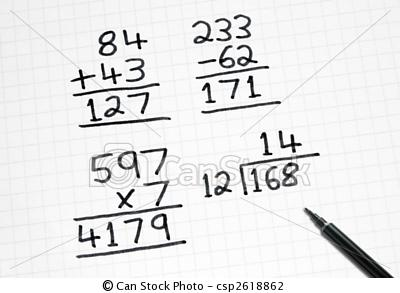 84
+43
127
233
-62
171
597
x 7
4179
14
12 168
CanStockPhoto
© Can Stock Photo - csp2618862